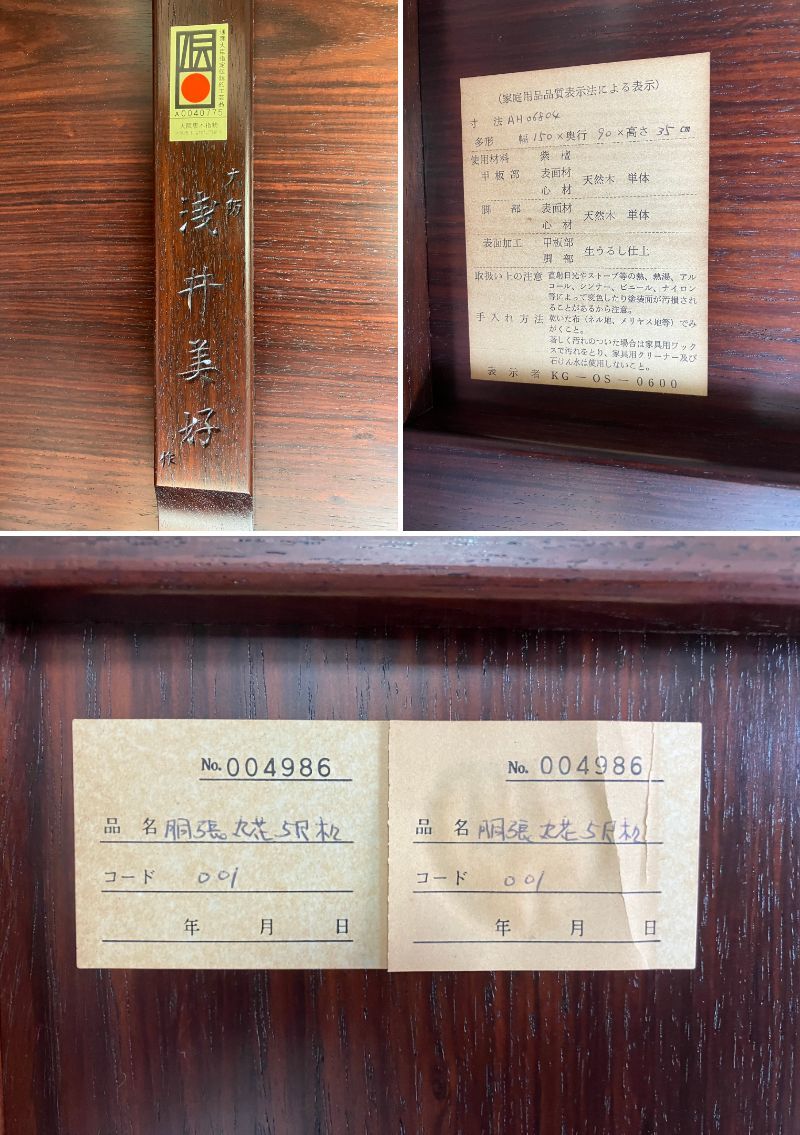 伝
通産大臣指定伝統的工芸品
A0040775
大阪唐木指物
大阪
浅井美好
作
(家庭用品品質表示法による表示)
寸 法 AH06804
多形 幅 150×奥行 90×高さ 35cm
使用材料 紫 檀
甲板部 表面材 天然木 単体
心 材
脚 部 表面材 天然木 単体
心 材
表面加工 甲板部 生うるし仕上
脚 部
取扱い上の注意 直射日光やストーブ等の熱、熱湯、アル
コール、シンナー、ビニール、ナイロン
等によって変色したり塗装面が汚損され
ることがあるから注意。
手入れ方法 乾いた布(ネル地、メリヤス地等)でみ
がくこと。
著しく汚れのついた場合は家具用ワック
スで汚れをとり、家具用クリーナー及び
石けん水は使用しないこと。
表 示 者 KG-OS-0600
No. 004986
品 名 胴張丸花5尺机
コード 001
年 月 日
No. 004986
品 名 胴張丸花5尺机
コード 001
年 月 日